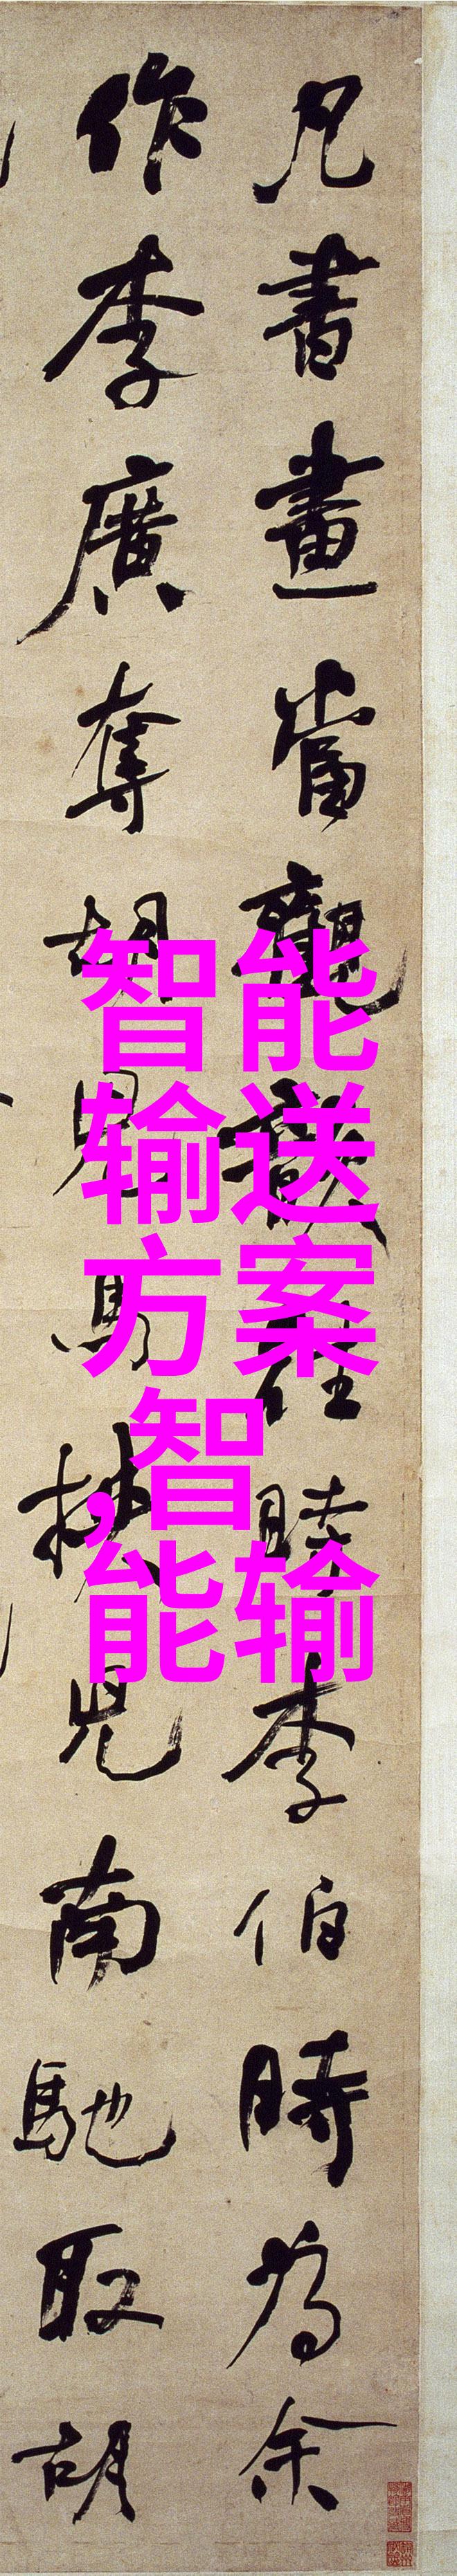 凡書畫當觀韻往時李伯時為余
作李廣奪胡兒馬挾兒南馳取胡
智能
输送
方案
,智
能输